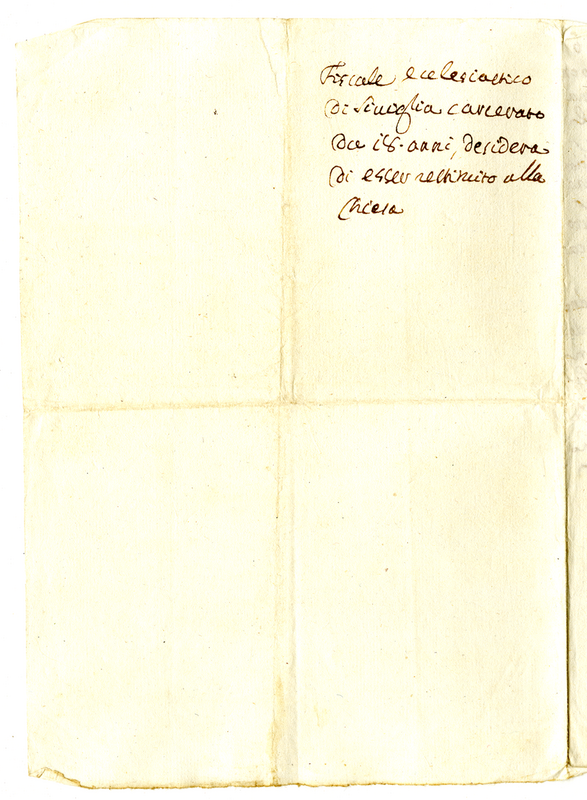 Fiscale ecclesiastico
di Siviglia carcerato
da 18. anni, desidera
di esser restituito alla
Chiesa